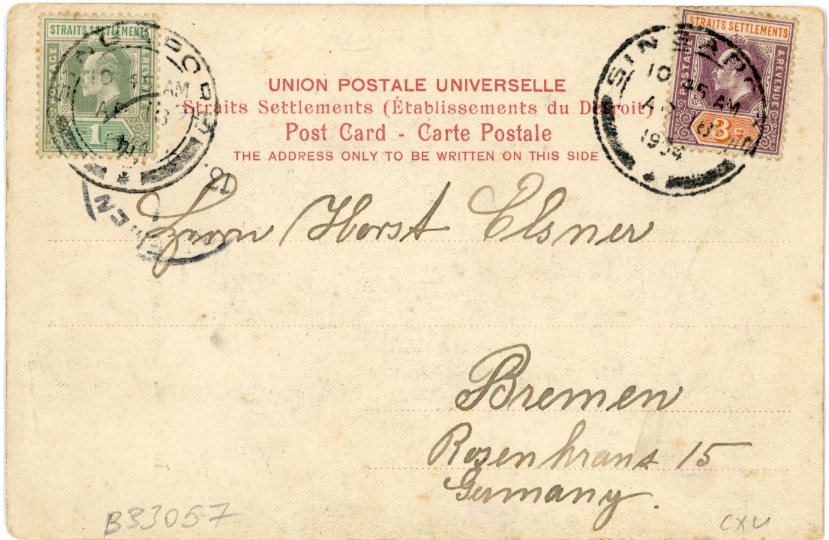 STRAITS SETTLEMENTS
POSTAGE & REVENUE
1c
SINGAPORE
10 45 AM
AP 18
STRAITS SETTLEMENTS
POSTAGE & REVENUE
3c
SINGAPORE
10 45 AM
AP 18
1904
UNION POSTALE UNIVERSELLE
Straits Settlements (Établissements du Détroit)
Post Card - Carte Postale
THE ADDRESS ONLY TO BE WRITTEN ON THIS SIDE
Herrn Horst Elsner
Bremen
Rosenkranz 15
Germany.
B33057
CXV